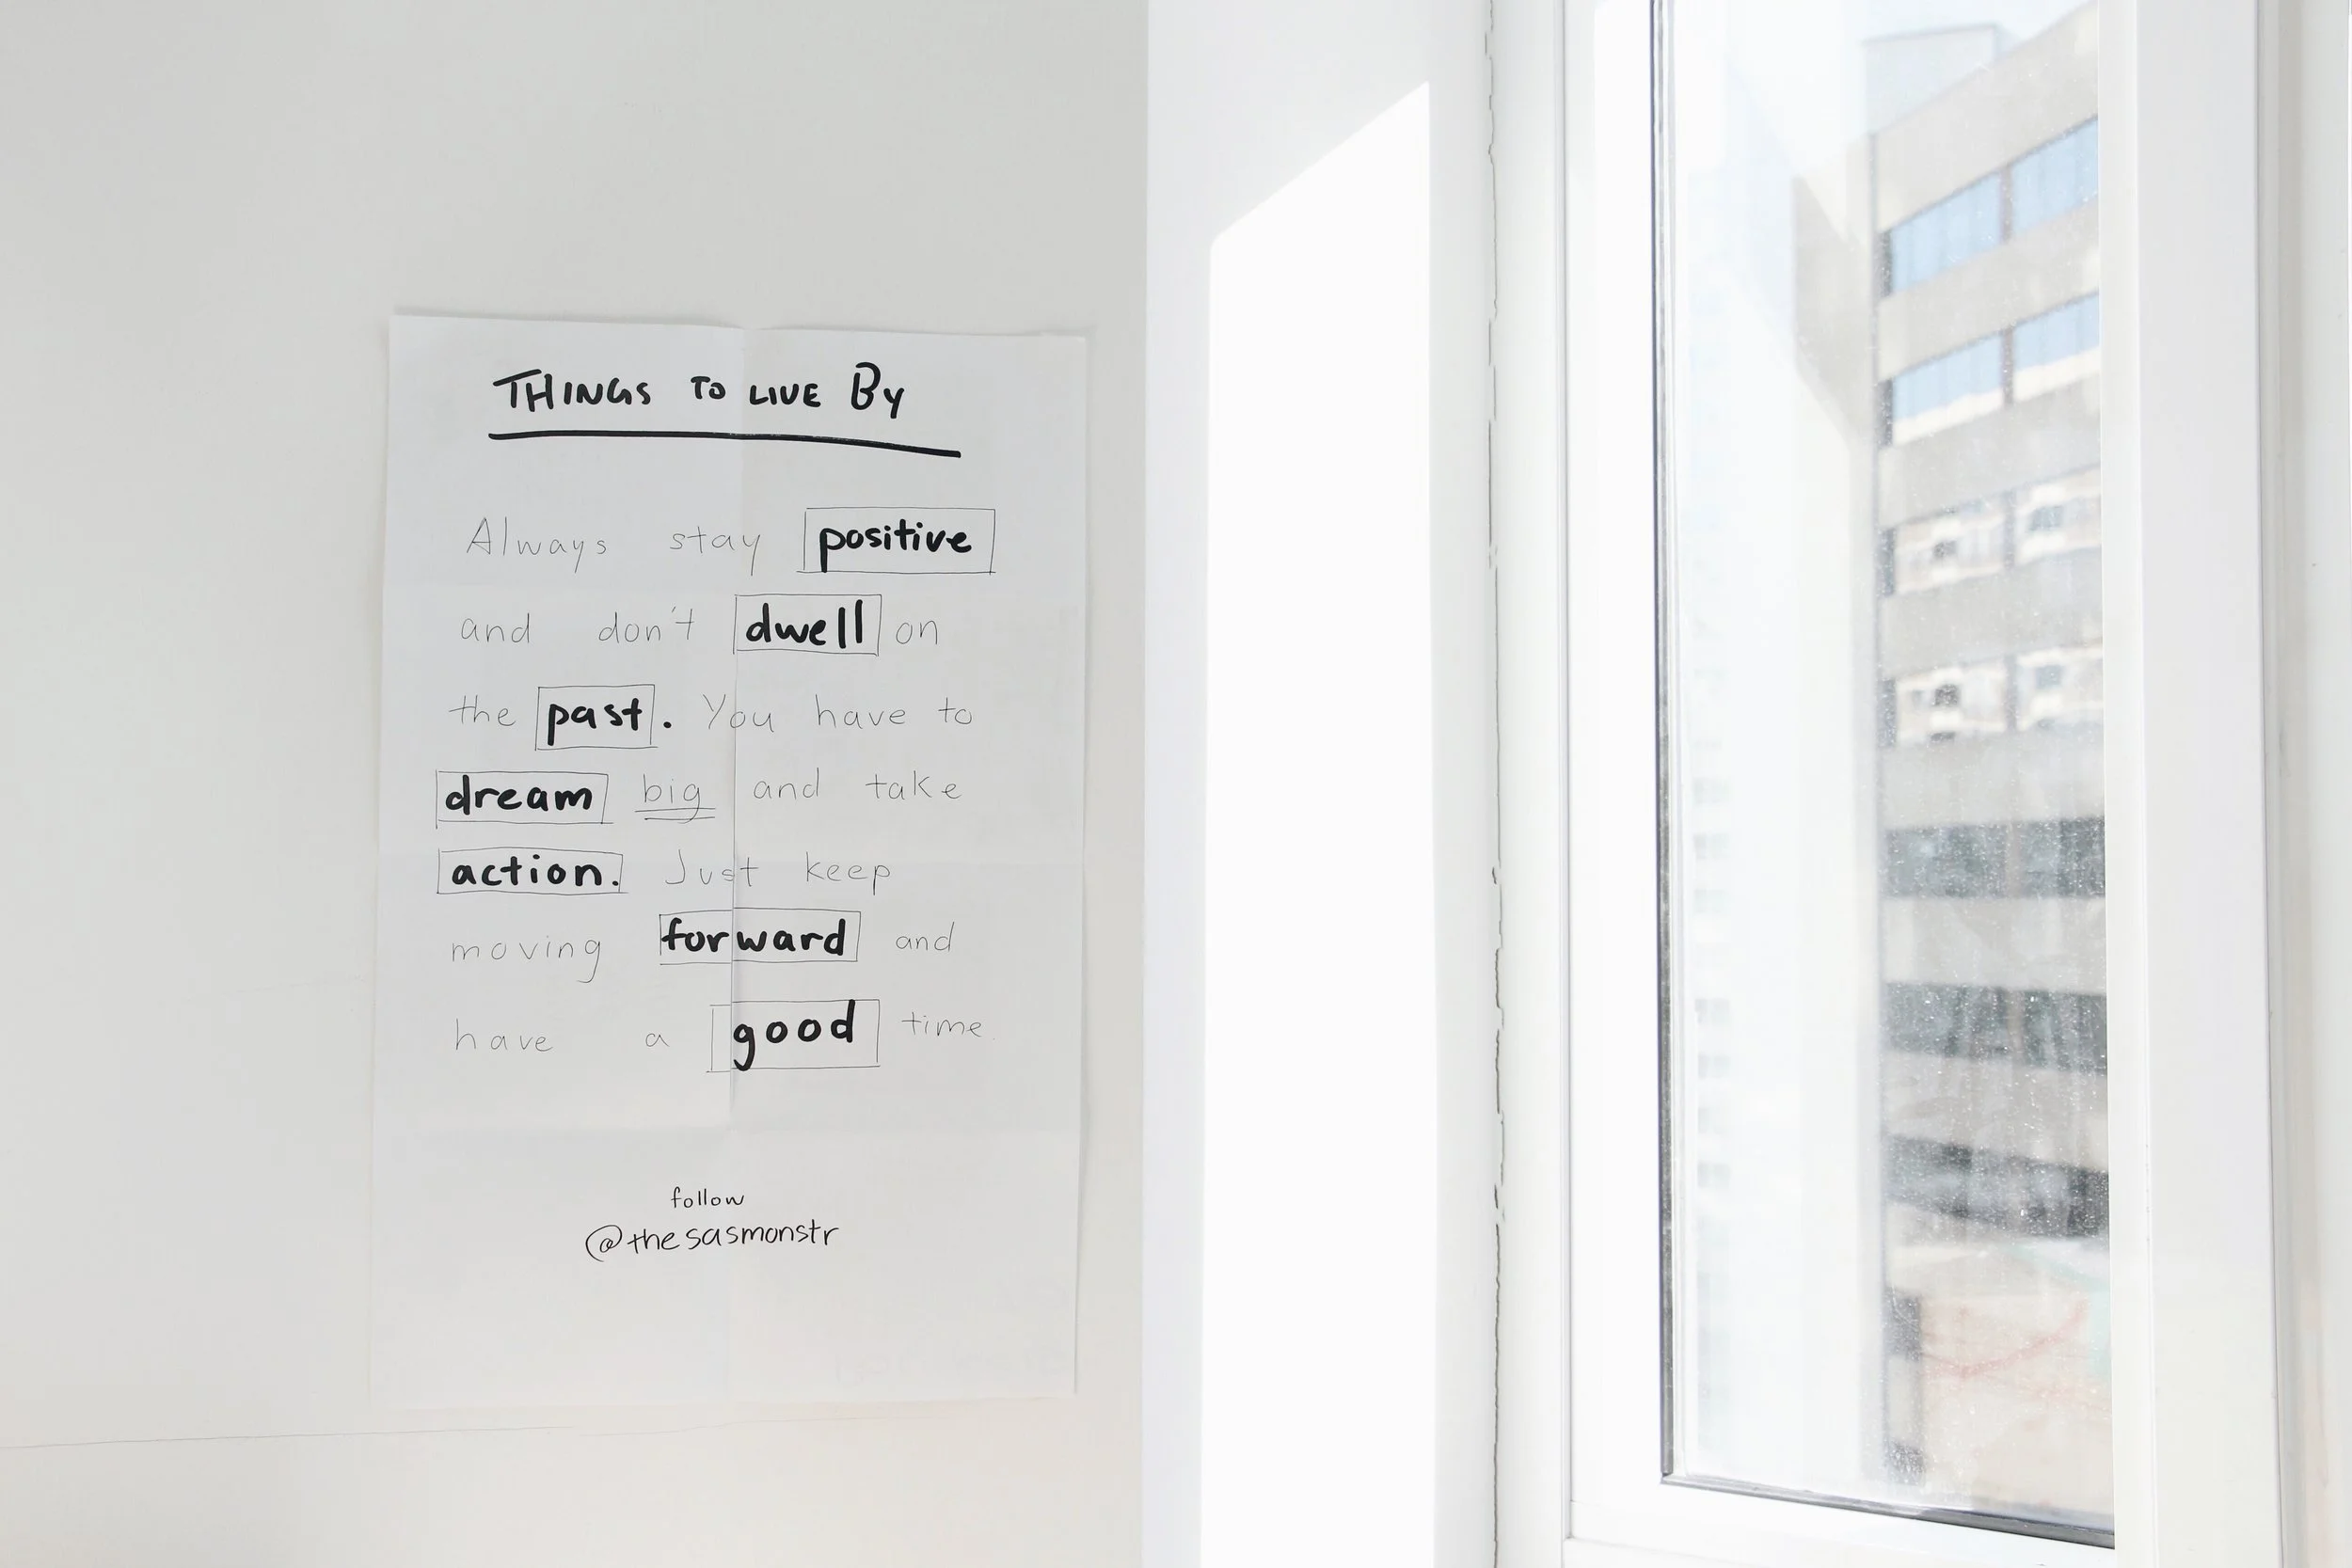 THINGS TO LIVE BY
Always stay positive
and don't dwell on
the past. You have to
dream big and take
action. Just keep
moving forward and
have a good time.
follow
@thesasmonstr